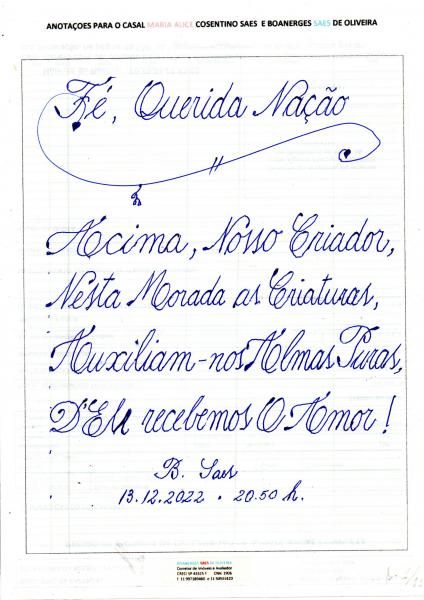 ANOTAÇOES PARA O CASAL MARIA ALICE COSENTINO SAES E BOANERGES SAES DE OLIVEIRA
Fé, Querida Nação
Acima, Nosso Criador,
Nesta Morada as Criaturas,
Auxiliam-nos Almas Puras,
D'Ele recebemos O Amor!
B. Saes
13.12.2022 . 20.50 h.
BOANERGES SAES DE OLIVEIRA
Corretor de Imóveis e Avaliador